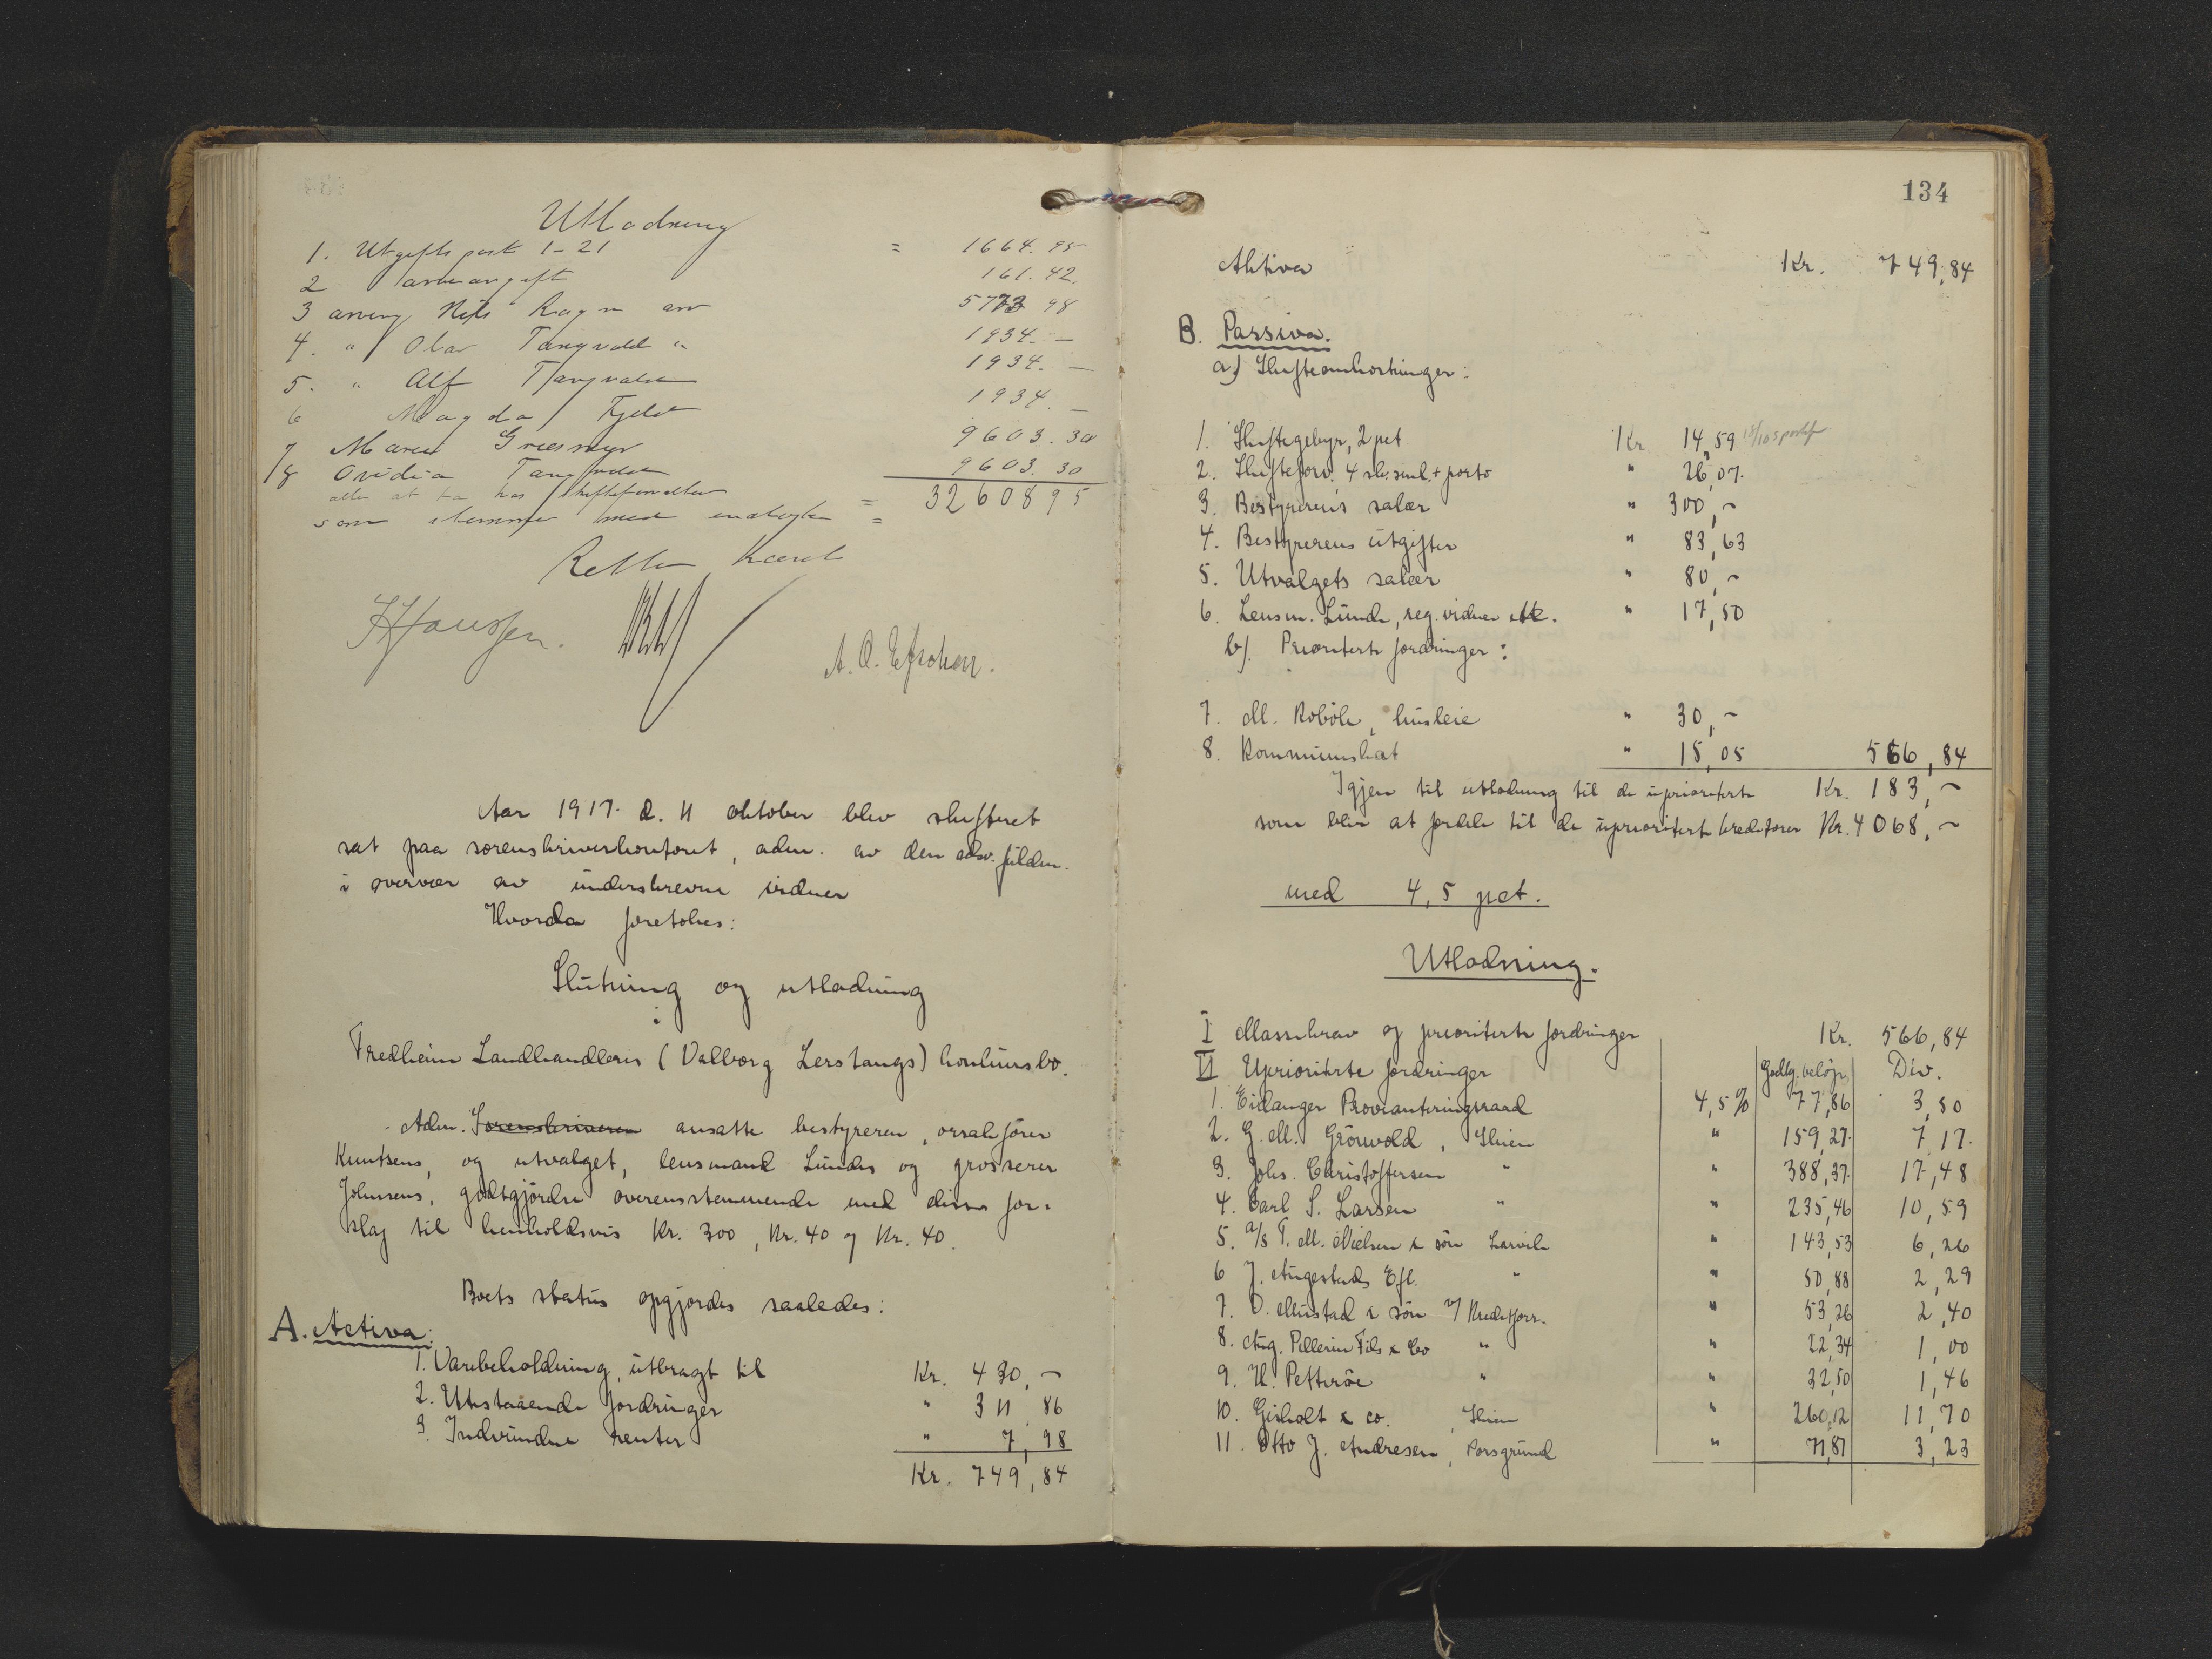 Utlodning
1. Utgifts post 1-21 = 1664.95
2 arveavgift 161.42.
3 arving Nils Ragn arv 5773 98
4. " Olav Tangvald " 1934.—
5. " Alf Tangvald 1934.—
6 Magda Fjeld 1934.—
7 Maren 9603.30
18 Ovidia Tangvald 9603.30
alle at ta hos skifteforvalter = 32608 95
som stemmer med =
Retten hævet
J Hanssen. A. O. 
Aar 1917. d. 11 oktober blev skifteret
sat paa sorenskriverkontoret, adm. av den edsv. fuldm.
i overvær av underskrevne vidner
Hvorda foretokes:
Slutning og utlodning
i
Fredheim Landhandleris (Valborg Lerstangs) konkursbo.
Adm. Sorenskriveren ansatte bestyreren, orsakfører
Knutsens, og utvalget, lensmand Lunds og grosserer
Johnsens, godtgjørelse overensstemmende med disses for-
slag til henholdsvis Kr. 300, Kr. 40 og Kr. 40.
Boets status opgjordes saaledes:
A. Activa:
1. Varebeholdning, utbragt til Kr. 430,-
2. Utestaaende fordringer " 311,86
3. Indvundne renter " 7,98
Kr. 749,84
134
Aktiva Kr. 749,84
B. Passiva.
a) Skifteomkostninger:
1. Skiftegebyr, 2 pct Kr 14,59
2. Skifteforv. 4 skr. sml. + porto " 26,07.
3. Bestyrerens salær " 300,-
4. Bestyrerens utgifter " 83,63
5. Utvalgets salær " 80,-
6. Lensm. Lunde, reg. vidner etc. " 17,50
b). Prioriterte fordringer:
7. M. Roböle, husleie " 30,-
8. Kommuneskat " 15,05 566,84
Igjen til utlodning til de uprioriterte Kr. 183,-
som blir at fordele til de uprioriterte kreditorer Kr. 4068,-
med 4,5 pct.
Utlodning.
I Massekrav og prioriterte fordringer Kr. 566,84
II Uprioriterte fordringer Godkj. beløp Div.
1. Eidanger Provianteringsraad 4,5 % 77,86 3,50
2. G. M. Grönvold, Skien " 159,27. 7,17.
3. Johs. Christoffersen " " 388,37. 17,48
4. Carl S. Larsen " " 235,46 10,59
5. A/S T. M. Nielsen & sön Larvik " 143,53 6,26
6 J. Augestads Eft. " " 50,88 2,29
7. O. Mustad & sön v/ Kreditforr. " 53,26 2,40
8. Aug. Pellerin Fils & Co " " 22,34 1,00
9. H. Petteröe " " 32,50 1,46
10. Gisholt & co., Skien " 260,12 11,70
11. Otto J. Andresen, Porsgrund " 71,87 3,23